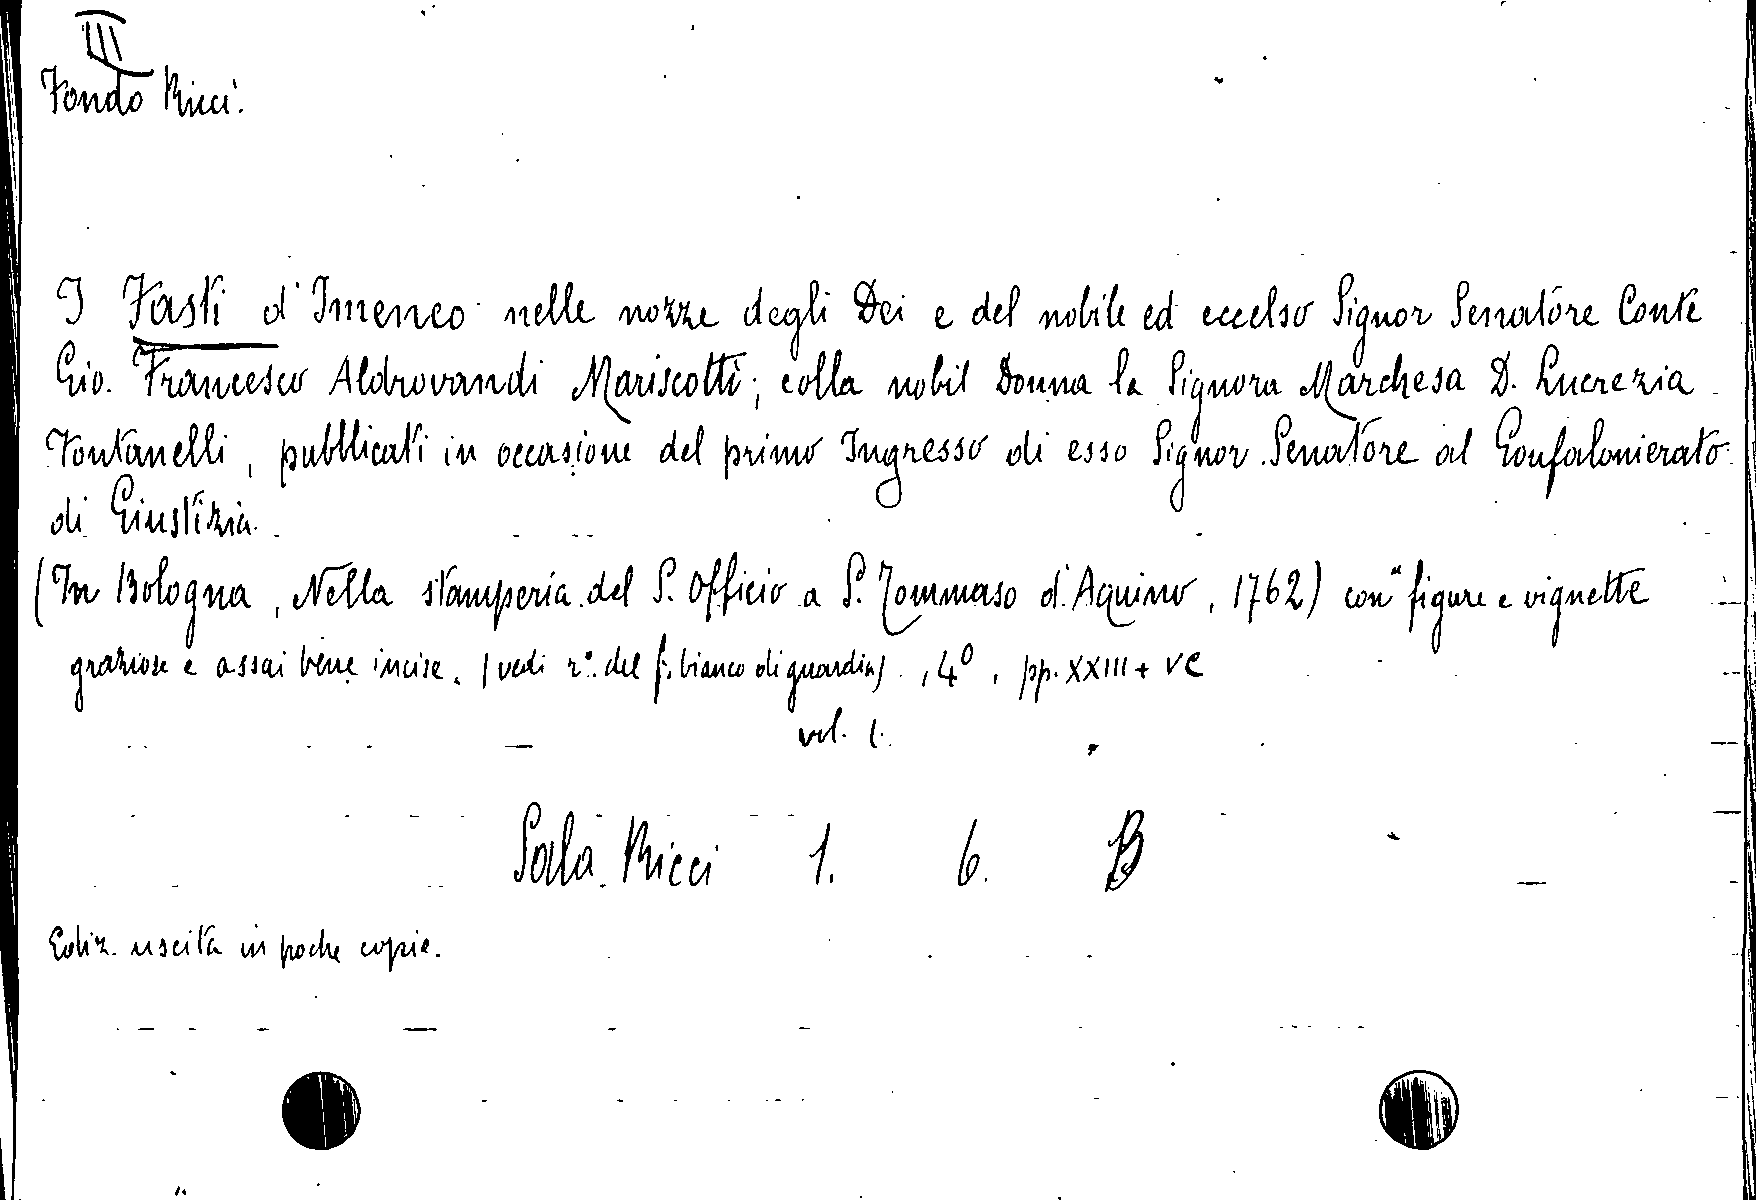 III
Fondo Ricci.
I Fasti d'Imeneo nelle nozze degli Dei e del nobile ed eccelso Signor Senatore Conte
Gio. Francesco Aldrovandi Mariscotti; colla nobil Donna la Signora Marchesa D. Lucrezia
Fontanelli, pubblicati in occasione del primo Ingresso di esso Signor Senatore al Gonfalonierato
di Giustizia.
(In Bologna, Nella stamperia del S. Officio a S. Tommaso d'Aquino, 1762) con "figure e vignette
graziose e assai bene incise. (vedi r.º del f. bianco di guardia), 4º, pp. XXIII + VC
vol. 1.
Sala Ricci 1. 6. B
Ediz. uscita in poche copie.